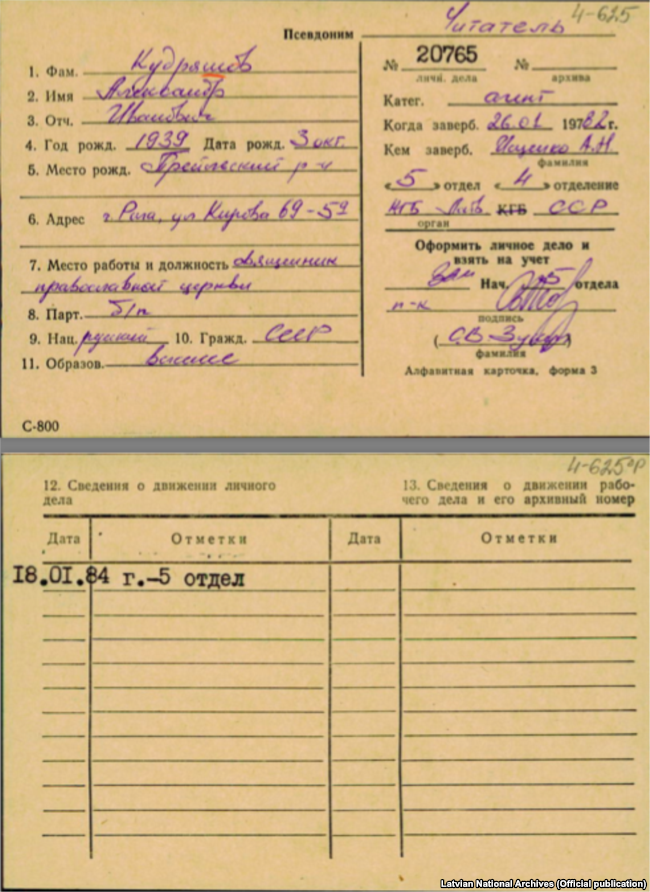 4-625
Псевдоним Читатель
1. Фам. Кудряшов
2. Имя Александр
3. Отч. Иванович
4. Год рожд. 1939 Дата рожд. 3 окт.
5. Место рожд. Прейльский р-н
6. Адрес г. Рига, ул Кирова 69-59
7. Место работы и должность священник
православной церкви
8. Парт. б/п
9. Нац. русский 10. Гражд. СССР
11. Образов. высшее
С-800
№ 20765 №
личн. дела архива
Катег. агент
Когда заверб. 26.01 197 82 г.
Кем заверб. Ищенко А.Н.
фамилия
«5» отдел «4» отделение
КГБ Латв КГБ ССР
орган
Оформить личное дело и
взять на учет
Зам Нач. 5 отдела
п-к
подпись
(С.В. )
фамилия
Алфавитная карточка, форма 3
4-625 ор
12. Сведения о движении личного
дела
13. Сведения о движении рабо-
чего дела и его архивный номер
Дата Отметки Дата Отметки
18.01.84 г.-5 отдел
Latvian National Archives (Official publication)